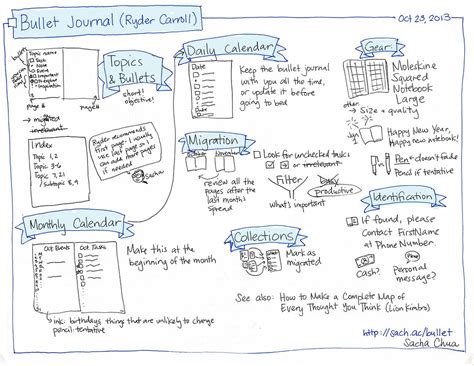 Bullet Journal (Ryder Carroll)
Oct 23, 2013
Topic name
Task
Note
Event
Important
Explore
Inspiration
page 8
page 9
migrated
irrelevant
Topics
& Bullets
short!
objective!
Index
Topic 1, 2
Topic 3-6
Topic 7, 21
Subtopic 8, 9
Ryder recommends
first page. I usually
use last page so I
can add more pages
if needed.
Sacha
Monthly Calendar
Oct Events
Oct Tasks
Make this at the
beginning of the month
ink: birthdays, things that are unlikely to change
pencil: tentative
Daily Calendar
Date
Date
Keep the bullet journal
with you all the time,
or update it before
going to bed
Migration
October
November
review all the
pages after the
last monthly
spread
Look for unchecked tasks
→ or irrelevant
Filter
what's important
busy
productive
Collections
Mark as
migrated
See also: How to Make a Complete Map of
Every Thought you Think (Lion Kimbro)
Gear
Moleskine
Squared
Notebook
Large
other → Size + quality
Jan
1
Happy New Year,
Happy new notebook!
Pen doesn't fade
Pencil if tentative
Identification
If found, please
contact FirstName
at Phone Number.
Cash?
Personal
message?
http://sach.ac/bullet
Sacha Chua